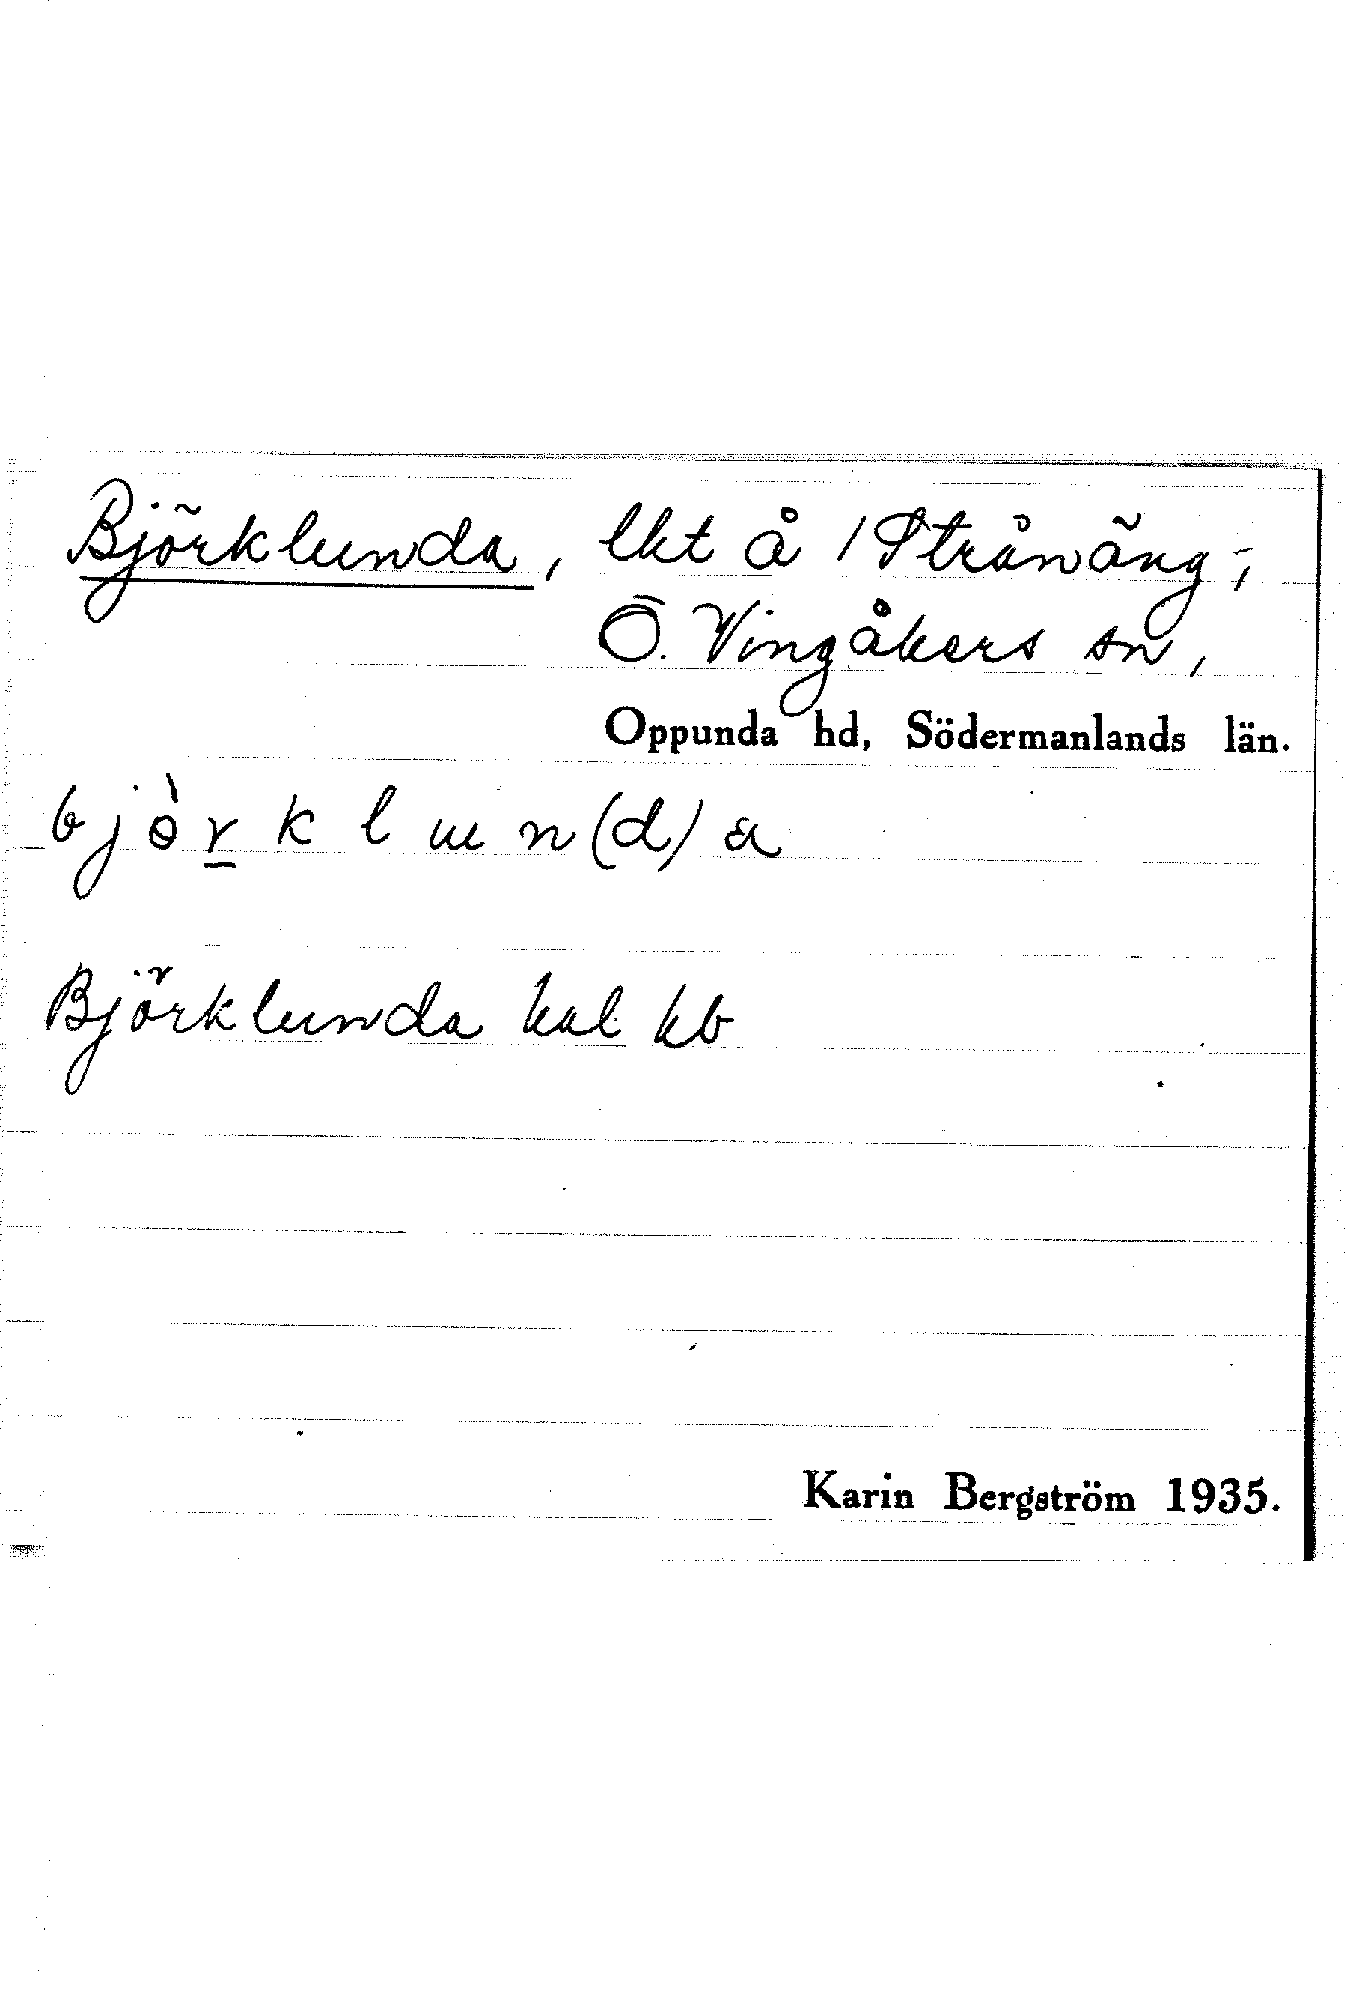 Björklunda, lht å 1 Strånäng;
Ö. Vingåkers sn,
Oppunda hd, Södermanlands län.
bjɵ̀r̲klɯn(d)a
Björklunda hal hb
Karin Bergström 1935.